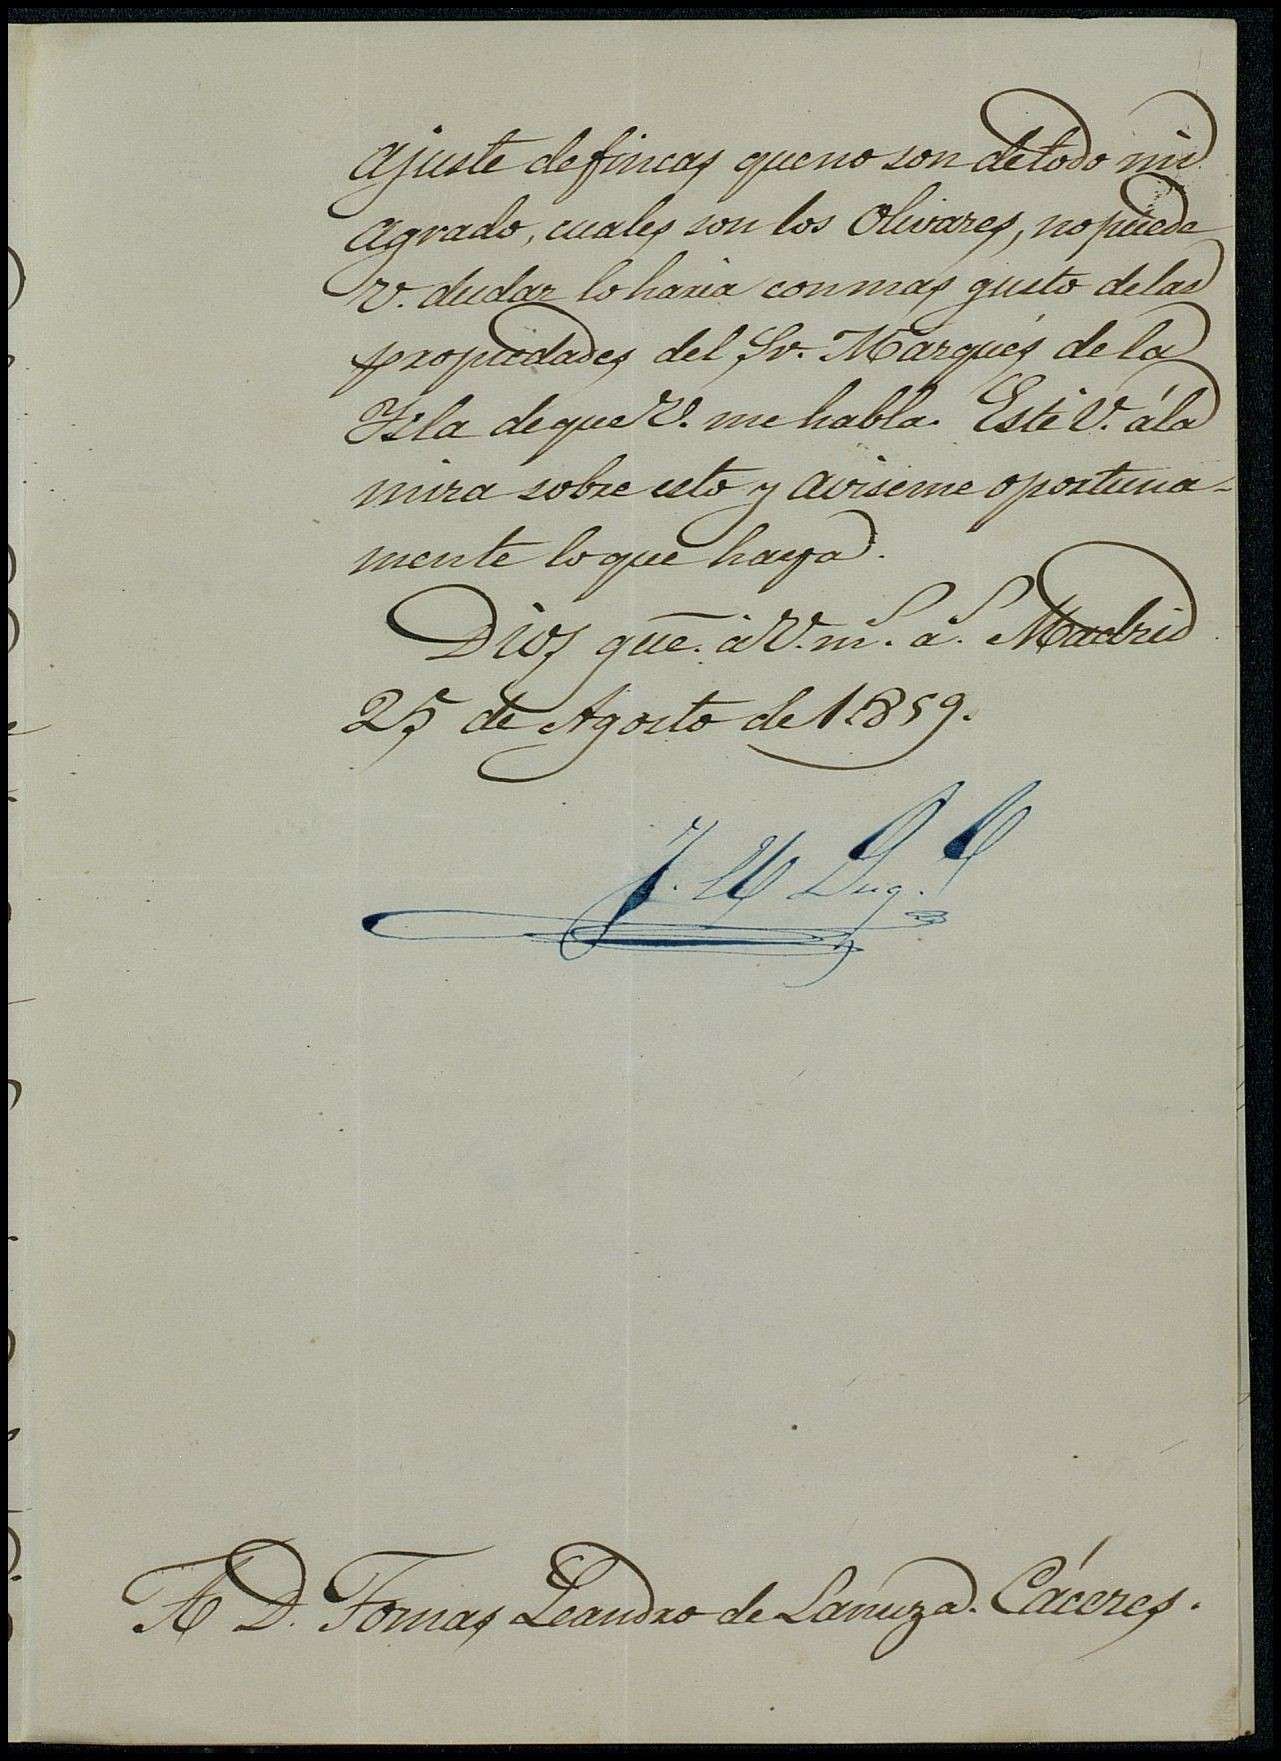 ajuste de fincas que no son de todo mi
agrado, cuales son los Olivares, no puede
V. dudar lo haria con mas gusto de las
propiedades del Sr. Marqués de la
Isla de que V. me habla. Esté V. á la
mira sobre esto y aviseme oportuna-
mente lo que haya.
Dios gue. á V. ms. as. Madrid
25 de Agosto de 1859.
A D. Tomas Leandro de Lanuza. Cáceres.